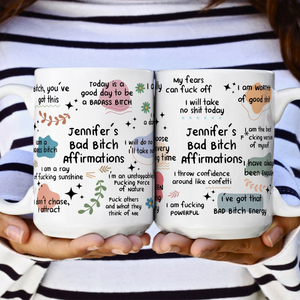 bitch, you've
got this
Today is a
good day to be
a BADASS BITCH
I
Jennifer's
Bad Bitch
Affirmations
I will do no
I'll take no
I am a ray
of fucking sunshine
I am an unstoppable
fucking force
of nature
don't chase,
attract
Fuck others
and what they
think of me
My fears
can fuck off
I will take
no shit today
I am worth
of good shit
Jennifer's
Bad Bitch
Affirmations,
time
I am the best
version
of myself
I have always
been
I throw confidence
around like confetti
I am fucking
POWERFUL
I've got that
BAD Bitch Energy